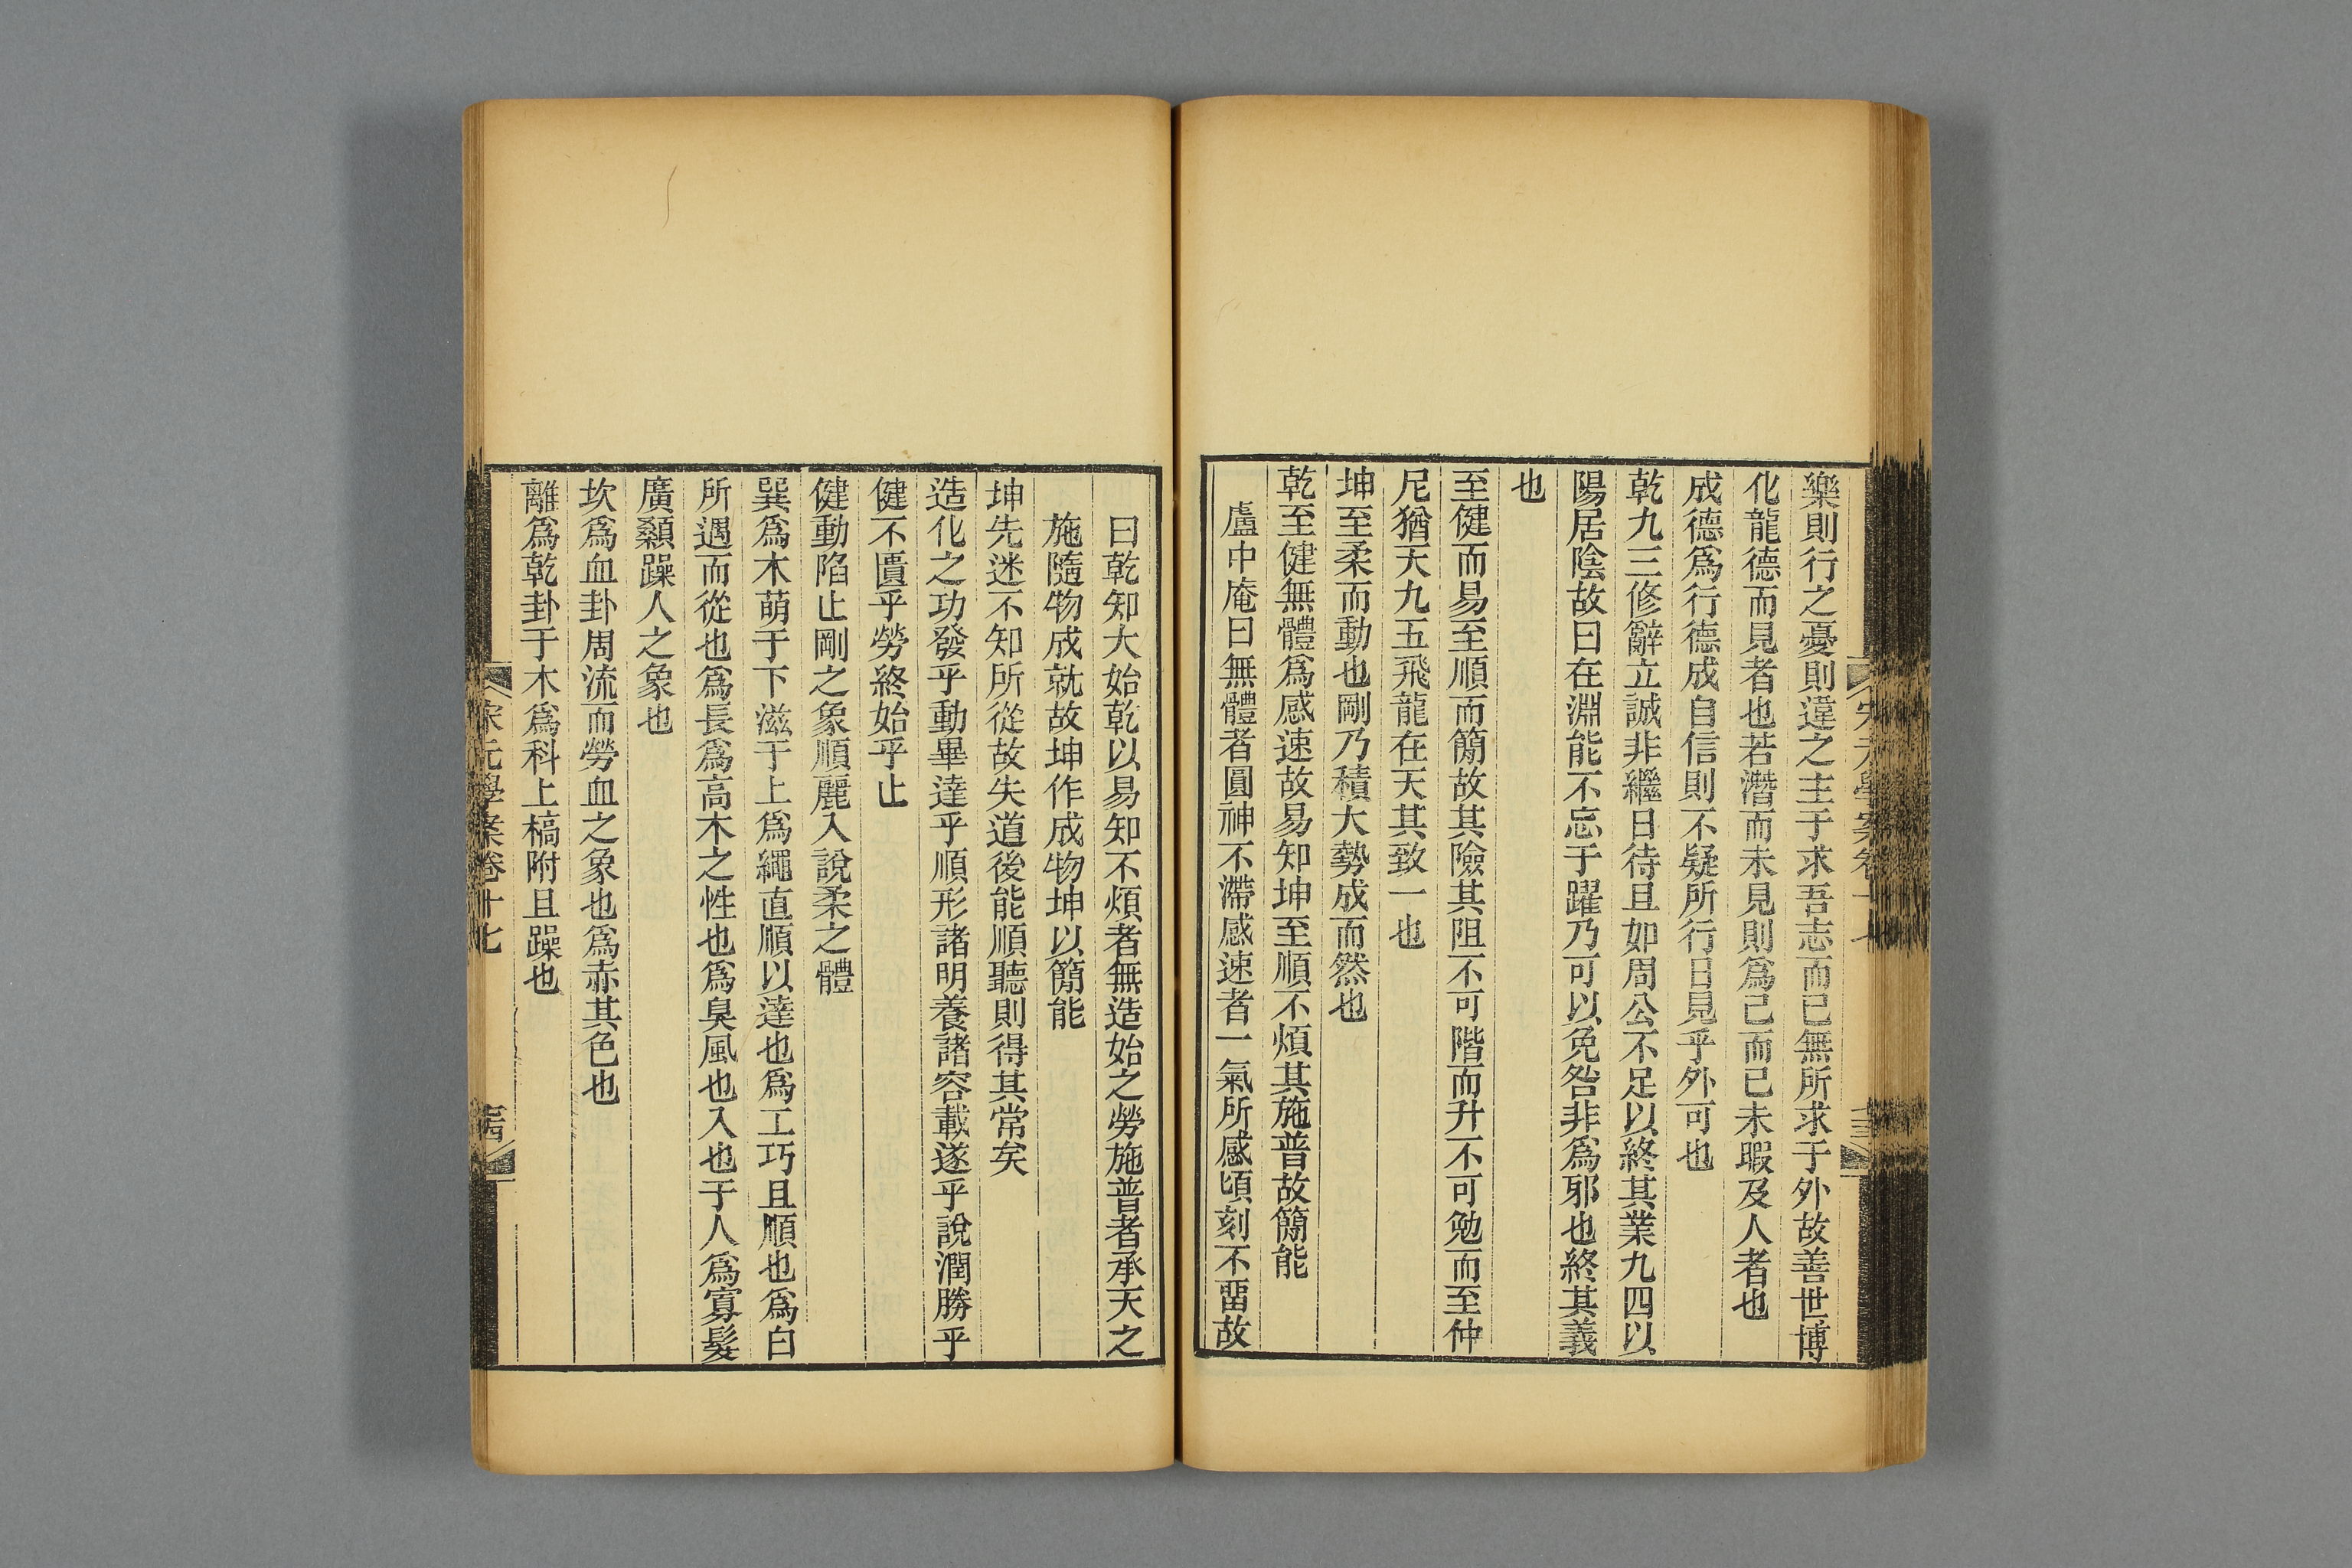 樂則行之憂則違之主于求吾志而已無所求于外故善世博
化龍德而見者也若潛而未見則爲己而已未暇及人者也
成德爲行德成自信則不疑所行日見乎外可也
乾九三修辭立誠非繼日待旦如周公不足以終其業九四以
陽居陰故曰在淵能不忘于躍乃可以免咎非爲邪也終其義
也
至健而易至順而簡故其險其阻不可階而升不可勉而至仲
尼猶天九五飛龍在天其致一也
坤至柔而動也剛乃積大勢成而然也
乾至健無體爲感速故易知坤至順不煩其施普故簡能
盧中庵曰無體者圓神不滯感速者一氣所感頃刻不畱故
曰乾知大始乾以易知不煩者無造始之勞施普者承天之
施隨物成就故坤作成物坤以簡能
坤先迷不知所從故失道後能順聽則得其常矣
造化之功發乎動畢達乎順形諸明養諸容載遂乎說潤勝乎
健不匱乎勞終始乎止
健動陷止剛之象順麗入說柔之體
巽爲木萌于下滋于上爲繩直順以達也爲工巧且順也爲白
所遇而從也爲長爲高木之性也爲臭風也入也于人爲寡髮
廣顙躁人之象也
坎爲血卦周流而勞血之象也爲赤其色也
離爲乾卦于木爲科上槁附且躁也
宋元學案卷十七